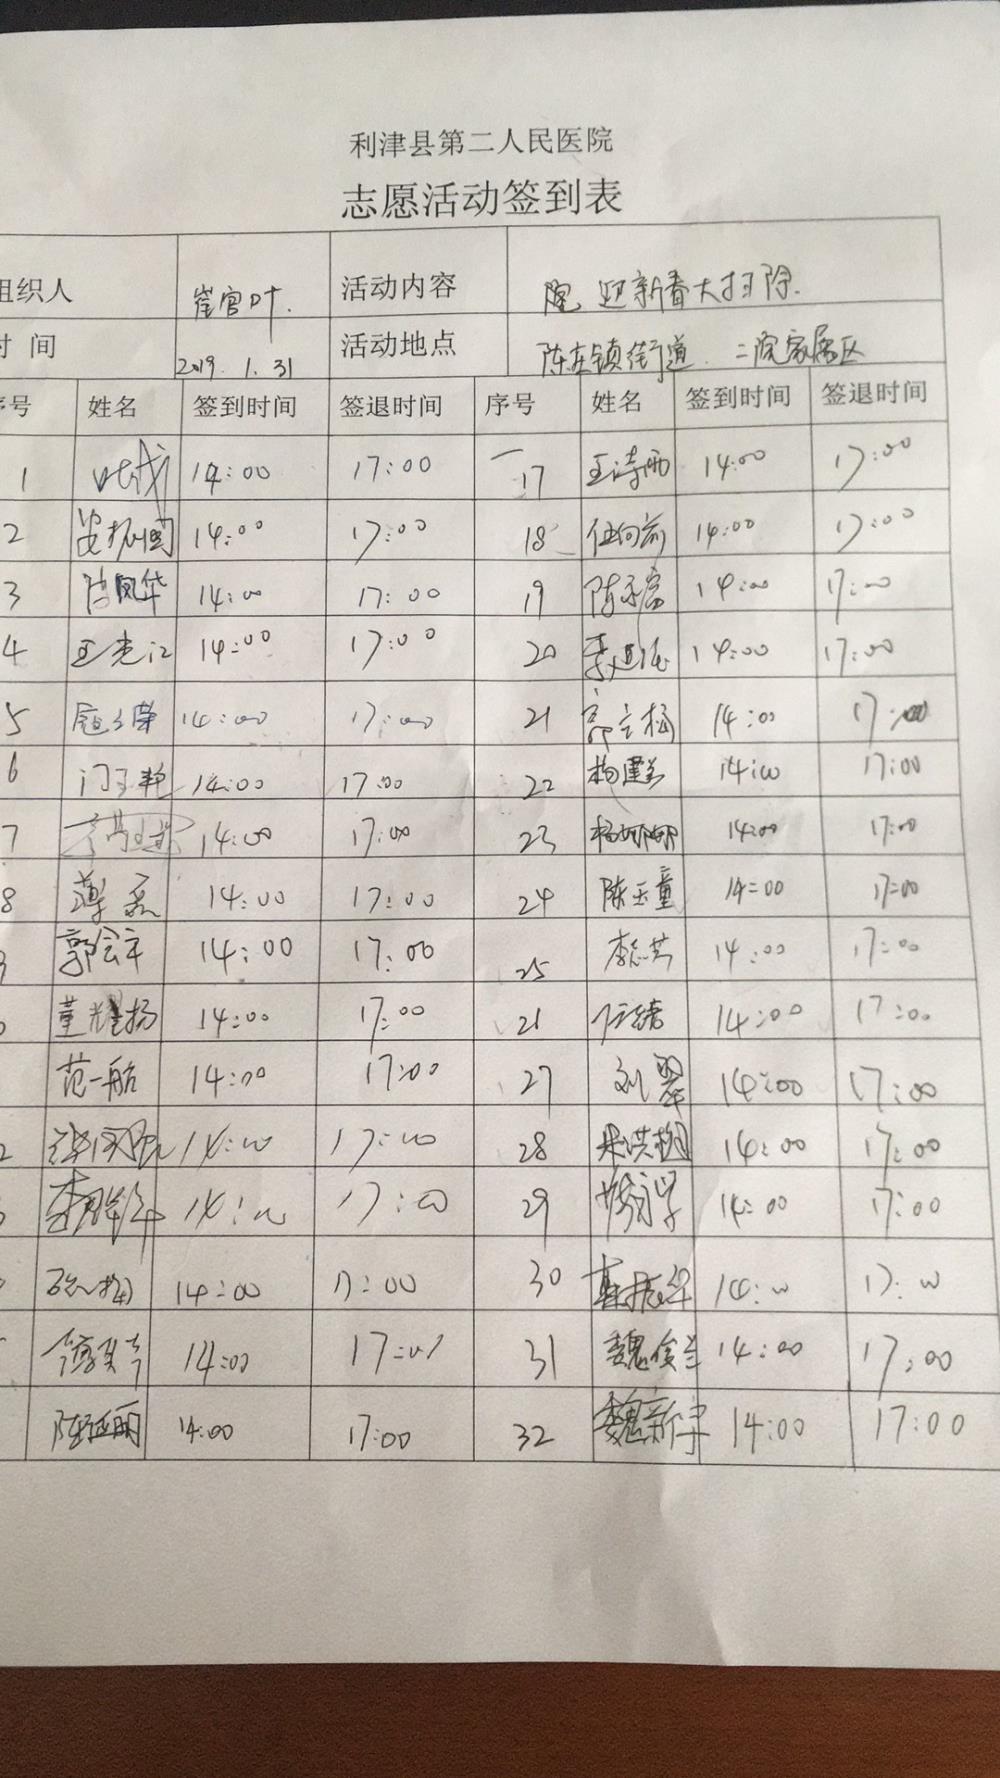 利津县第二人民医院
志愿活动签到表
组织人 崔官叶. 活动内容 迎新春大扫除.
时 间 2019. 1. 31 活动地点 陈庄镇街道. 二院家属区
序号 姓名 签到时间 签退时间 序号 姓名 签到时间 签退时间
1 14:00 17:00 17 王诗雨 14:00 17:00
2 14:00 17:00 18 伍向前 14:00 17:00
3 14:00 17:00 19 14:00 17:00
4 14:00 17:00 20 14:00 17:00
5 14:00 17:00 21 14:00 17:00
6 14:00 17:00 22 14:00 17:00
7 14:00 17:00 23 杨娜娜 14:00 17:00
8 薄磊 14:00 17:00 24 陈玉童 14:00 17:00
郭会军 14:00 17:00 25 14:00 17:00
董耀扬 14:00 17:00 21 14:00 17:00
范一航 14:00 17:00 27 刘翠 14:00 17:00
2 14:00 17:00 28 14:00 17:00
14:00 17:00 29 14:00 17:00
14:00 17:00 30 14:00 17:00
14:00 17:00 31 魏俊兰 14:00 17:00
陈延丽 14:00 17:00 32 魏新宇 14:00 17:00